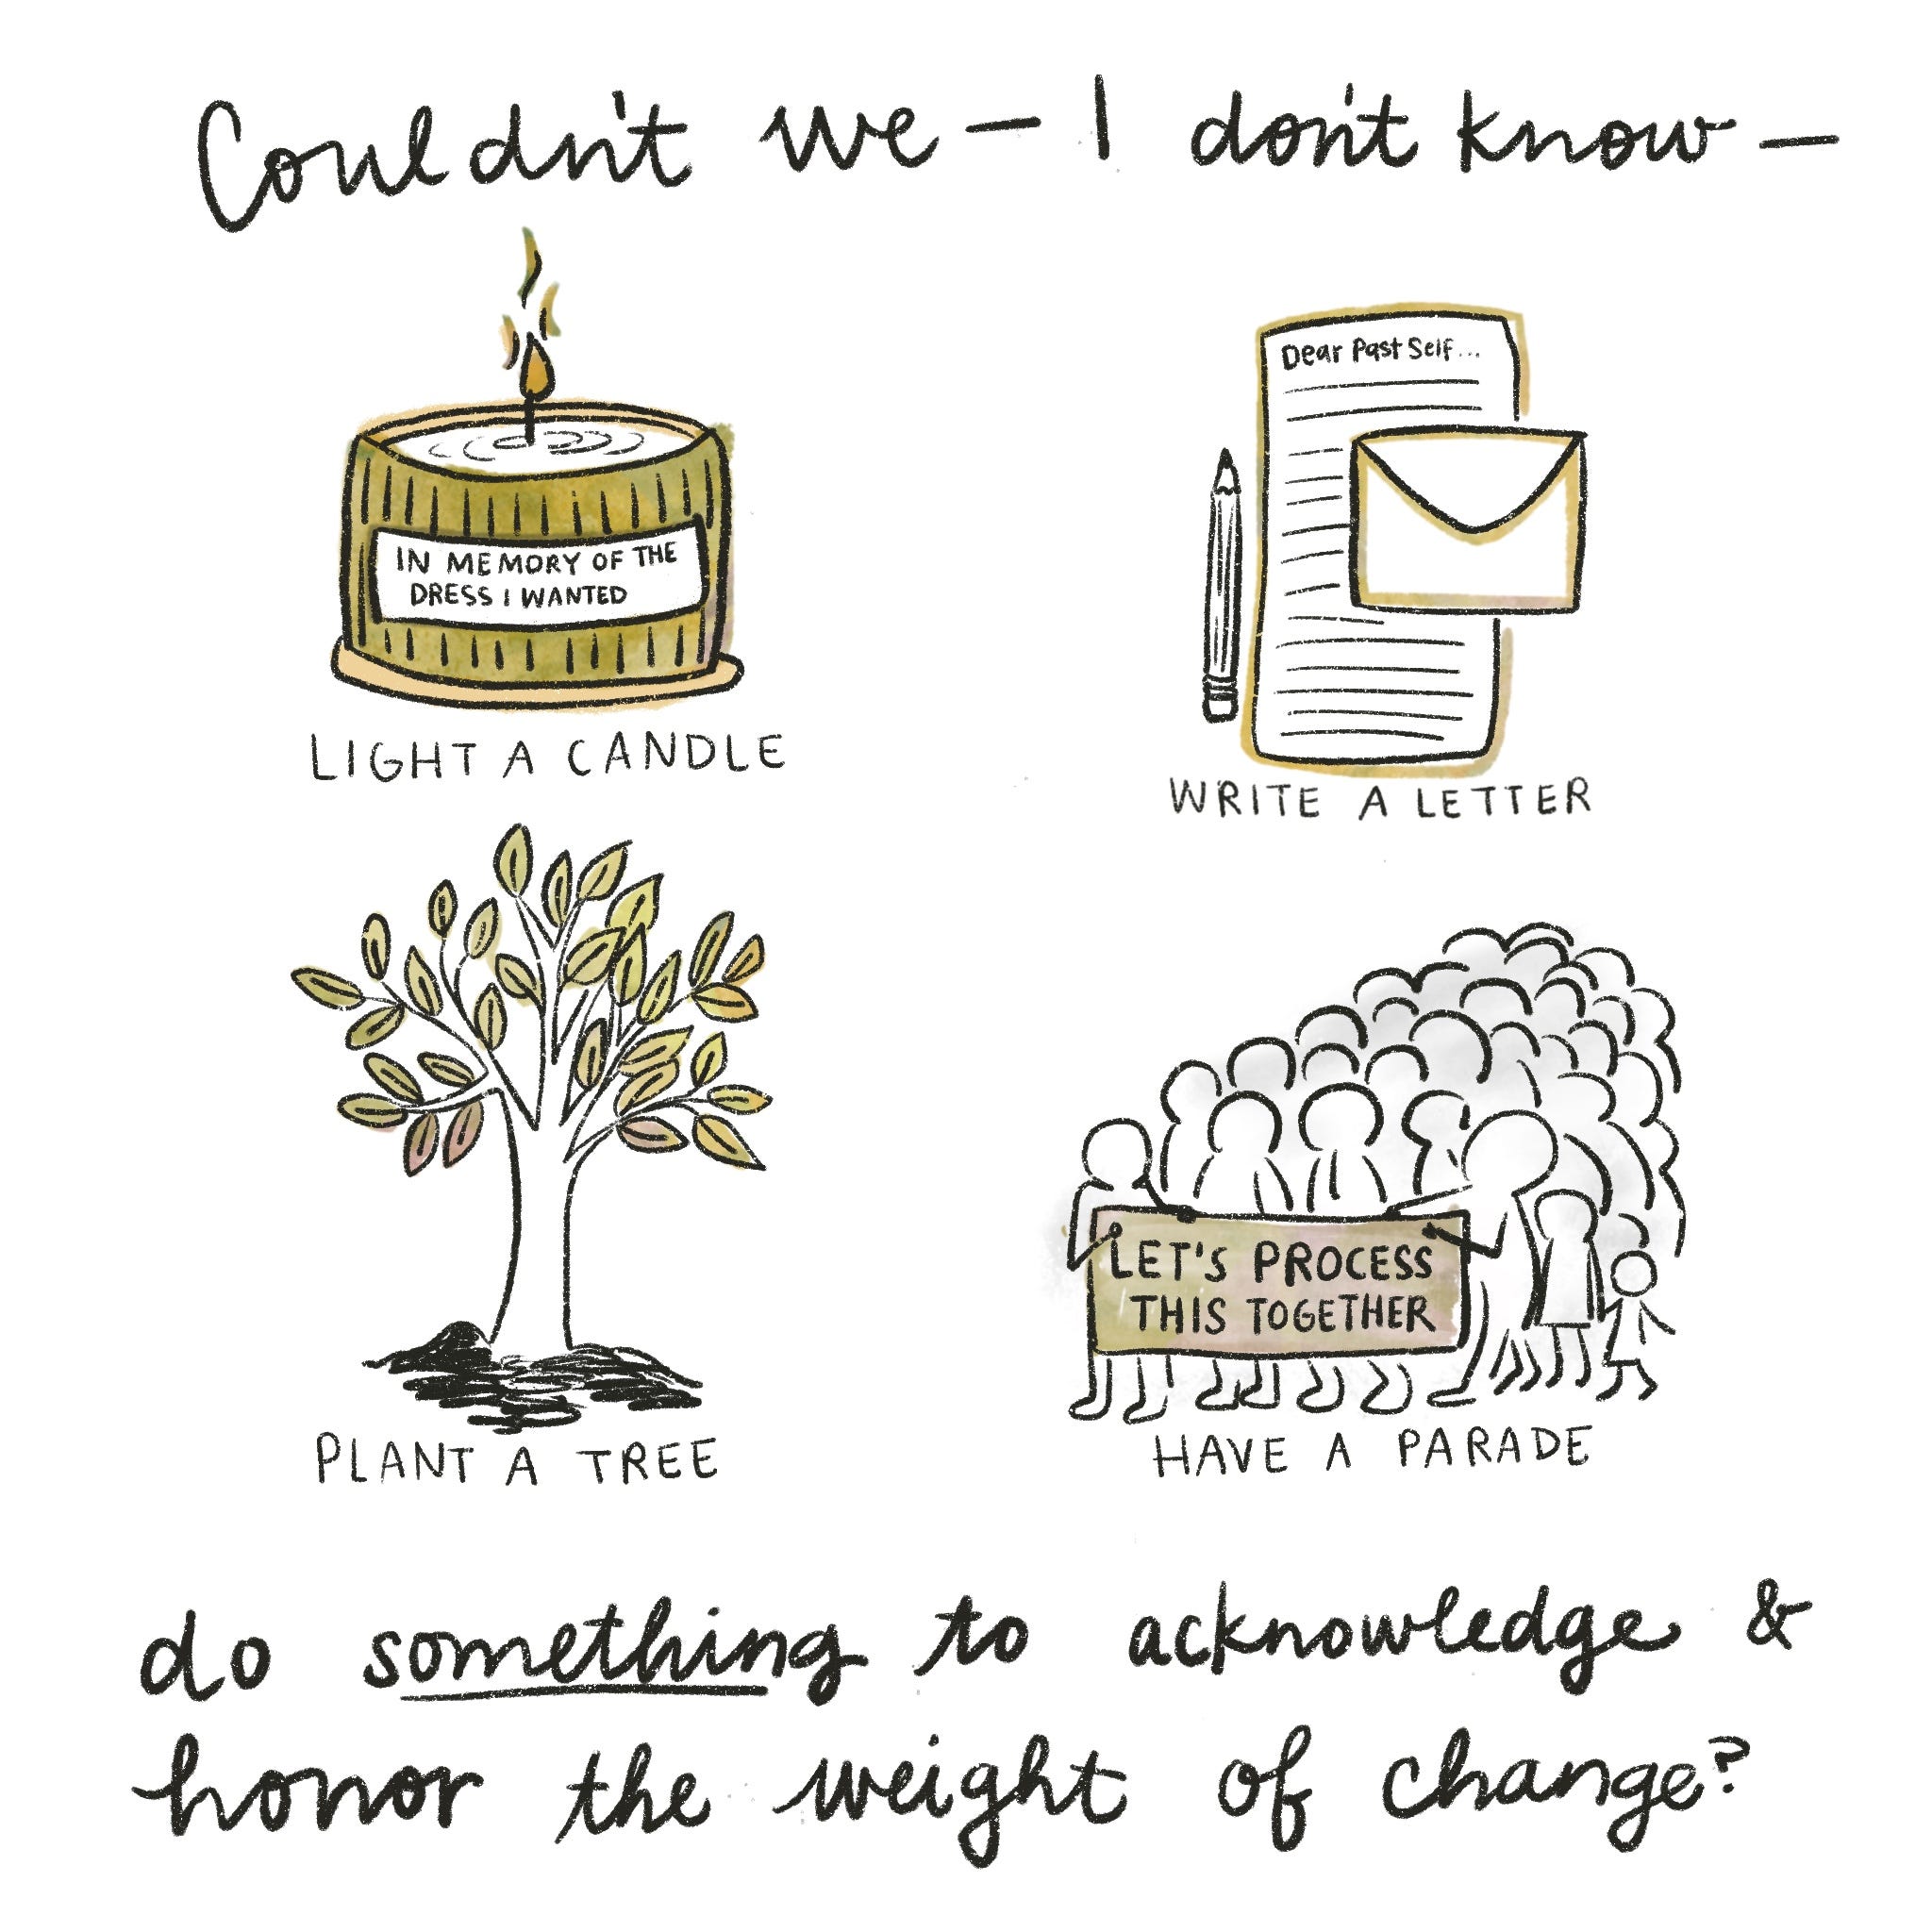 Couldn't we – I don't know –
IN MEMORY OF THE
DRESS I WANTED
LIGHT A CANDLE
Dear Past Self...
WRITE A LETTER
PLANT A TREE
LET'S PROCESS
THIS TOGETHER
HAVE A PARADE
do something to acknowledge &
honor the weight of change?